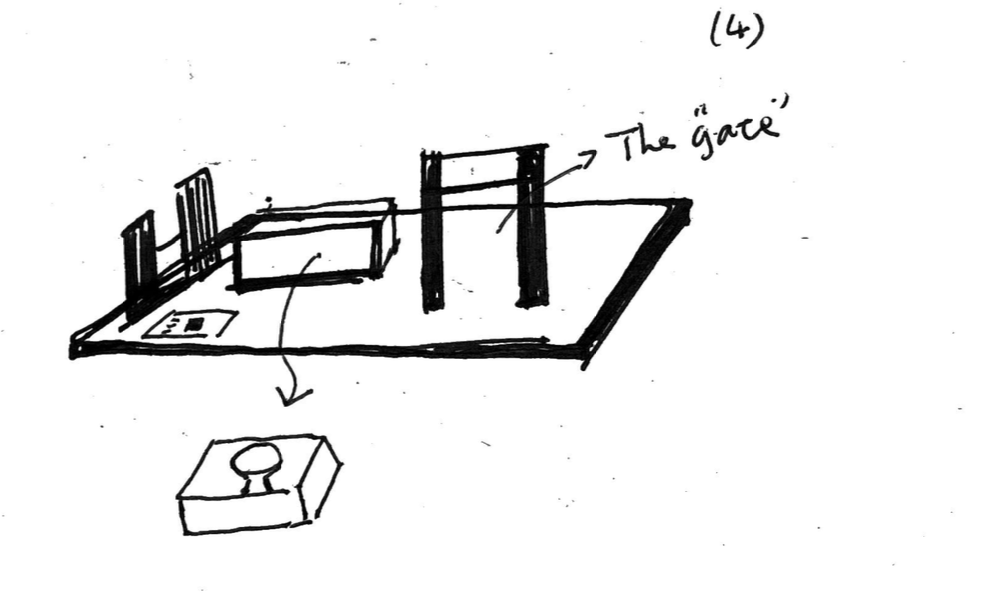 (4)
The "gate"